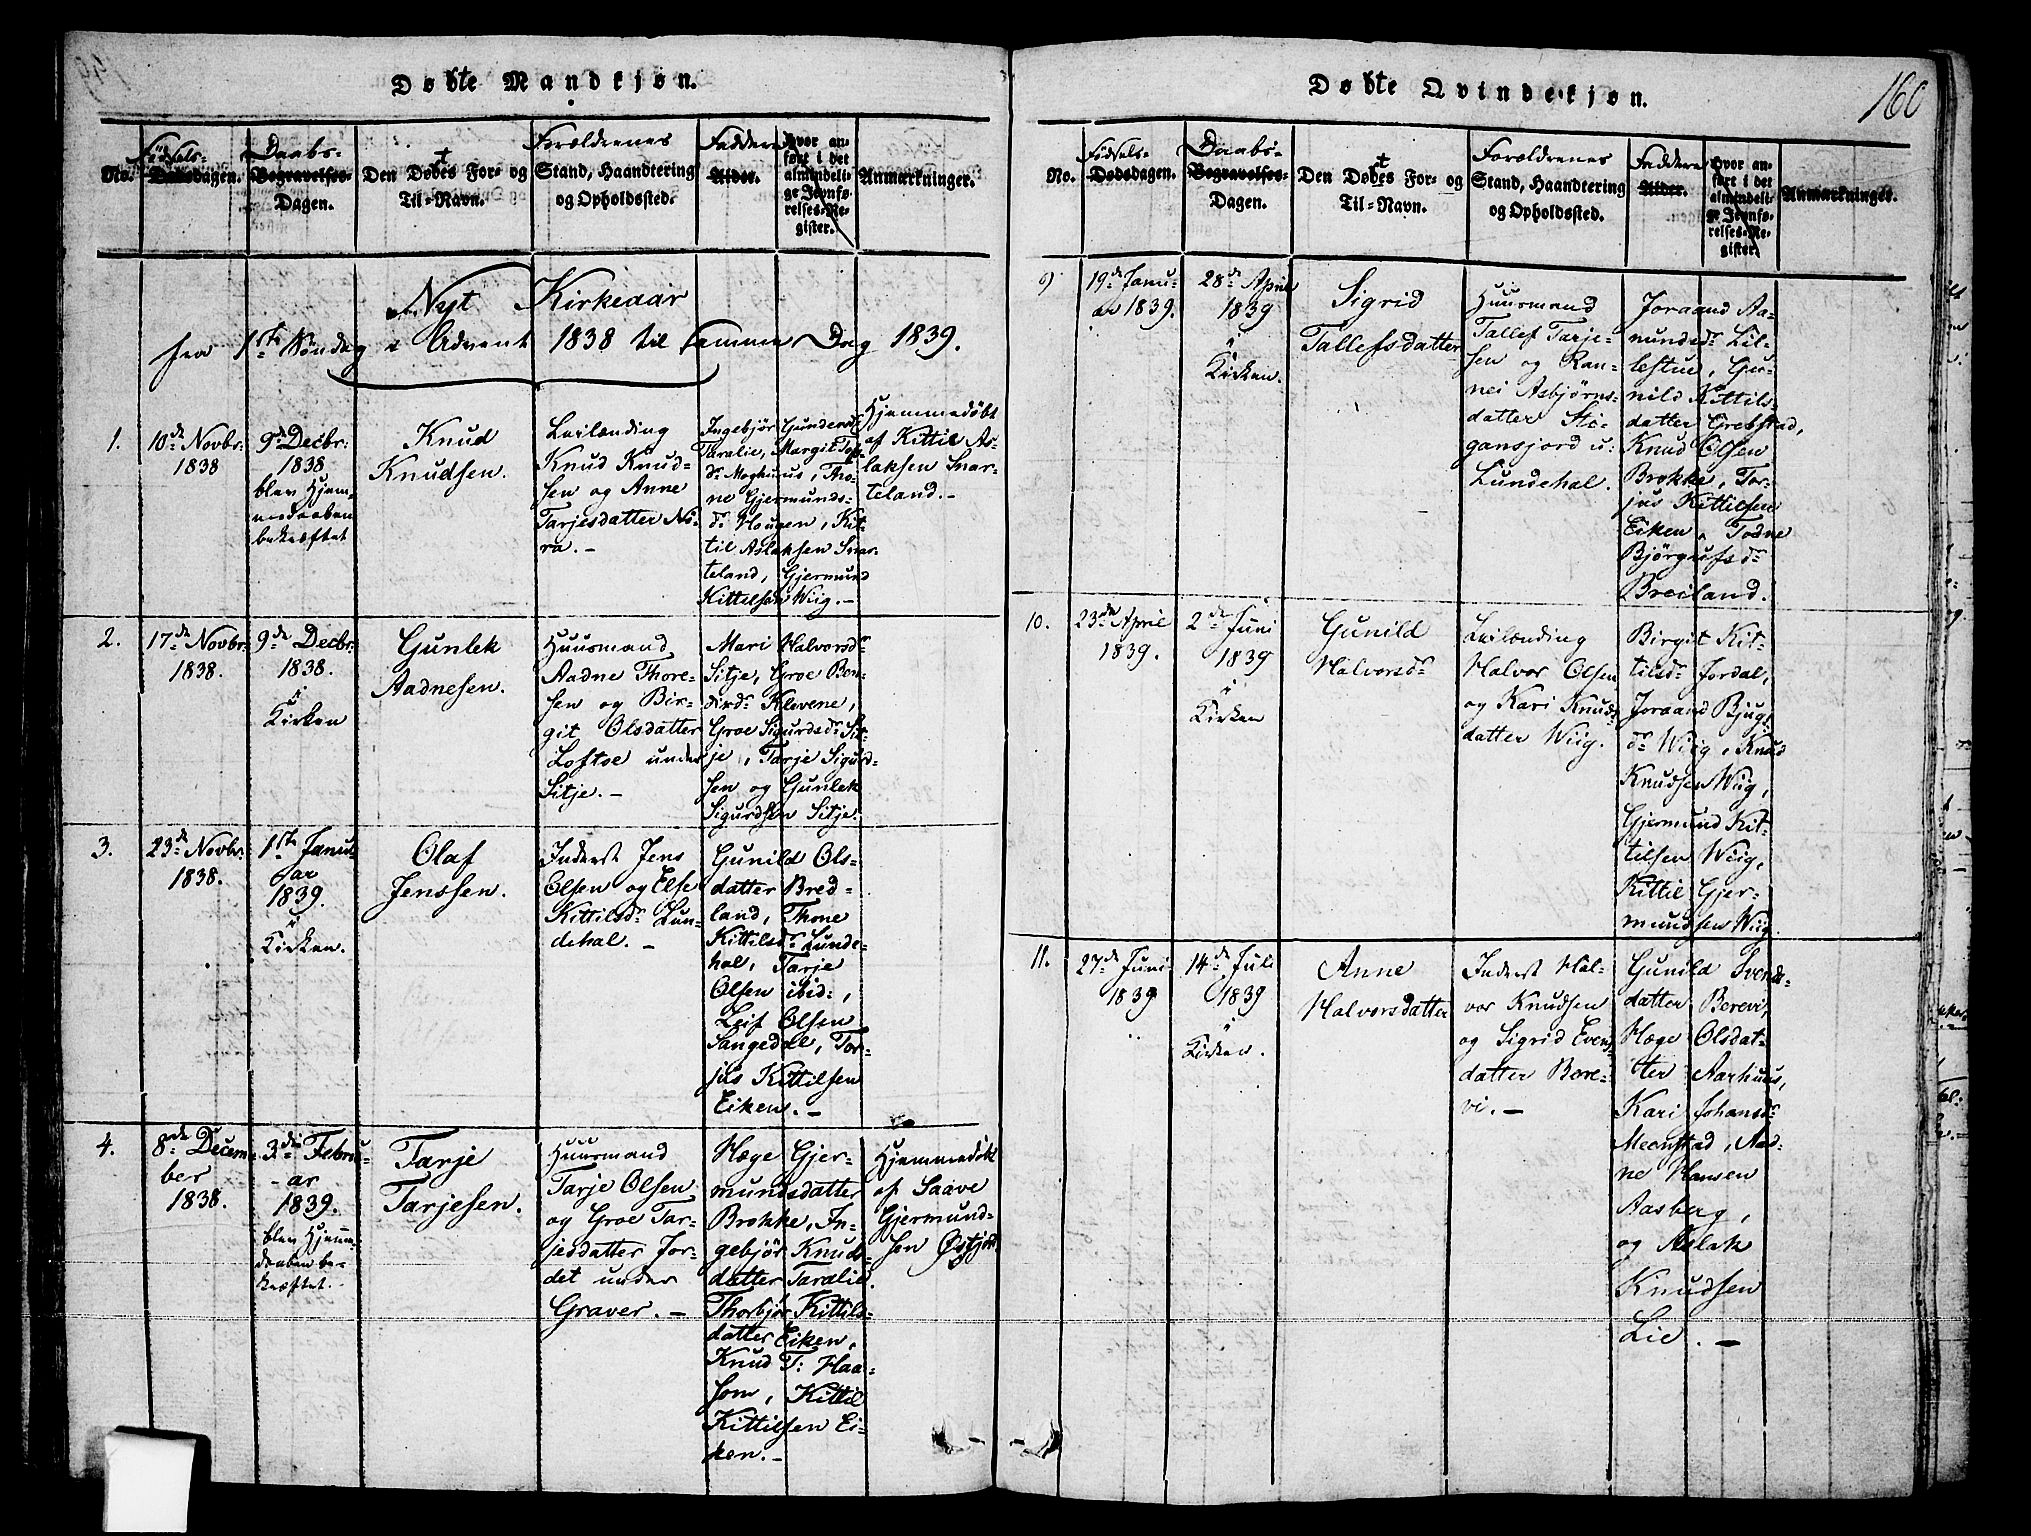 Døbte Mandkjøn.
No.
Fødsels-
Dødsdagen.
Daabs-
Begravelses-
Dagen.
Den Døbtes For- og
Til-Navn.
Forældrenes
Stand, Haandtering
og Opholdssted.
Faddere
Alder.
Hvor an-
ført i det
almindeli-
ge Jevnfø-
relses-Re-
gister.
Anmærkninger.
Nyt Kirkeaar
fra 1ste Søndag i Advent 1838 til samme Dag 1839.
1.
10de Novbr:
1838
9de Decbr:
1838
blev Hjem-
medaaben
bekræftet
Knud
Knudsen.
Leilænding
Knud Knud-
sen og Anne
Tarjesdatter No-
ra. –
Ingebjør Gunders
Taralie, Margit
dr Moghuus, Tho-
ne Gjermunds-
dr Hougen, Kit-
til Aslaksen Snar-
teland, Gjermund
Kittilsen Wiig. –
Hjemmedøbt
af Kittil As-
laksen Snar-
teland. –
2.
17de Novbr:
1838.
9de Decbr:
1838.
i
Kirken
Gunlek
Aadnesen.
Huusmand
Aadne Thore-
sen og Bir-
git Olsdatter
Loftoe under
Sitje. –
Mari Halvorsdr
Sitje, Groe Ben-
dixdr Klevene,
Groe Sigurdsdr Sit-
je, Tarje Sigurd-
sen og Gunlek
Sigurdsen Sitje.
3.
23de Novbr:
1838.
1ste Janu-
ar
1839.
i
Kirken.
Olaf
Jenssen.
Inderst Jens
Olsen og Else
Kittilsdr Lun-
dehal. –
Gunild Ols-
datter Bred-
land, Thone
Kittilsdr Lunde-
hal, Tarje
Olsen ibid:,
Leif Olsen
Langedal, Tor-
jus Kittilsen
Eiken. –
4.
8de Decem-
ber
1838.
3de Febru-
ar
1839.
blev Hjemme-
daaben be-
kræftet.
Tarje
Tarjesen.
Huusmand
Tarje Olsen
og Groe Tar-
jesdatter Jor-
det under
Graver. –
Hæge Gjer-
mundsdatter
Brokke, In-
gebjør Knuds-
datter Taralie.
Thorbjør Kittils-
datter Eiken,
Knud T: Haa-
som, Kittil
Kittilsen Ei-
ken. –
Hjemmedøbt
af Saave
Gjermund-
sen Østjord
Døbte Qvindekjøn.
160
No.
Fødsels-
Dødsdagen.
Daabs-
Begravelses-
Dagen.
Den Døbtes For- og
Til-Navn.
Forældrenes
Stand, Haandtering
og Opholdssted.
Faddere
Alder.
Hvor an-
ført i det
almindeli-
ge Jevnfø-
relses-Re-
gister.
Anmærkninger.
9)
19de Janu-
ar 1839.
28de April
1839
i
Kirken.
Sigrid
Tallefsdatter
Huusmand
Tallef Tarje-
sen og Ran-
nei Asbjørns-
datter Sti-
gansjord u:
Lundehal.
Joraand Aa-
mundsdr Lil-
lestue, Gu-
nild Kittils-
datter Grebstad,
Knud Olsen
Brokke, Tor-
jus Kittilsen
Eiken, Todne
Bjørgufsdr
Breiland.
10.
23de April
1839.
2de Juni
1839
i
Kirken
Gunild
Halvorsdr
Leilænding
Halvor Olsen
og Kari Knuds
datter Wiig.
Birgit Kit-
tilsdr Jordal,
Joraand Bjugs
dr Wiig, Knud
Knudsen Wiig,
Gjermund Kit-
tilsen Wiig,
Kittil Gjer-
mundsen Wiig.
11.
27de Juni
1839
14de Juli
1839
i
Kirken.
Anne
Halvorsdatter
Inderst Hal-
vor Knudsen
og Sigrid Evens
datter Bere-
vi. –
Gunild Svends-
datter Berevi,
Hæge Olsdat-
ter Aarhuus,
Kari Johansdr
Meenstad, Aad-
ne Hansen
Aasberg,
og Aslak
Knudsen
Lie. –